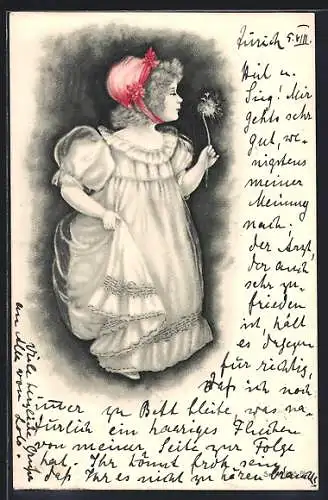 Zürich 5. VIII.
Heil u.
Sieg! Mir
gehts sehr
gut, we-
nigstens
meiner
Meinung
nach;
der Arzt,
der auch
sehr zu-
frieden
ist, hält
es dagegen
für richtig,
daß ich noch
immer zu Bett bleibe, was na-
türlich ein haariges Fluchen
von meiner Seite zur Folge
hat. Ihr könnt froh sein,
daß Ihr es nicht zu hören braucht
Viele herzliche Grüße
an Alle von Lolo.